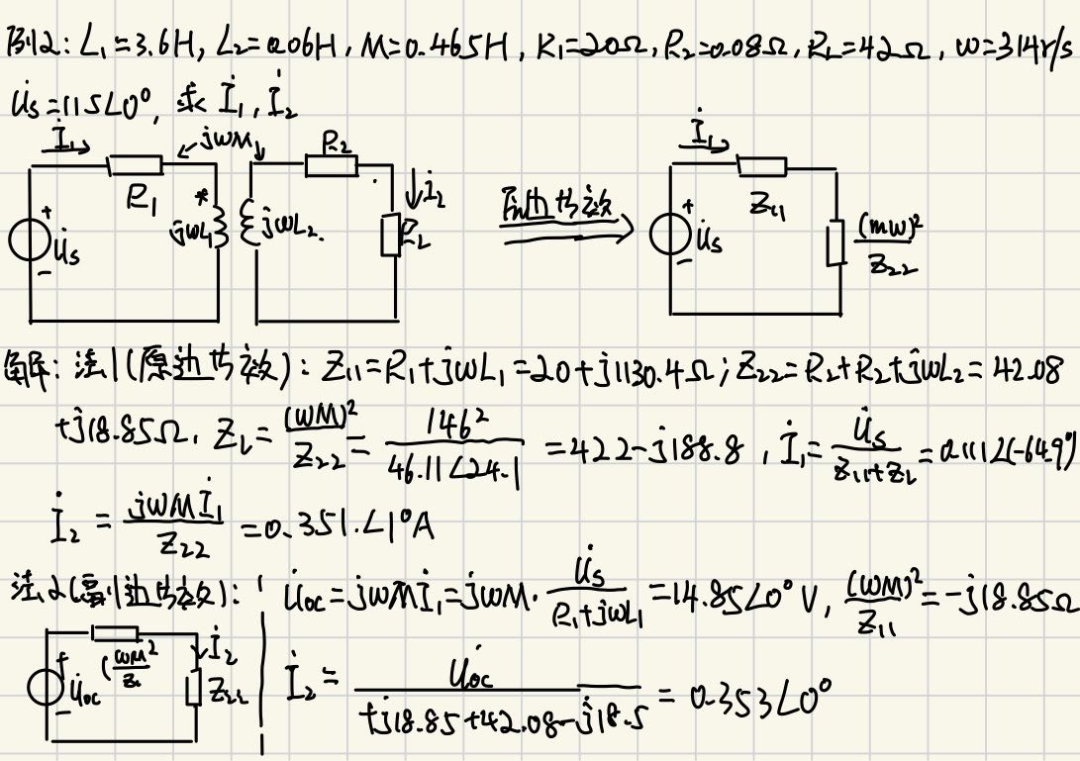 例2: L₁=3.6H, L₂=0.06H, M=0.465H, R₁=20Ω, R₂=0.08Ω, R_L=42Ω, ω=314r/s
U̇s=115∠0°, 求 İ₁, İ₂
İ₁ jωM R₂ İ₁
R₁ * jωL₁ jωL₂ İ₂ R_L 原边等效 Z₁₁
+ U̇s - + U̇s - (mω)²/Z₂₂
解: 法1(原边等效): Z₁₁=R₁+jωL₁=20+j1130.4Ω; Z₂₂=R₂+R₂+jωL₂=42.08
+j18.85Ω, Z_L=(ωM)²/Z₂₂=146²/46.11∠24.1=422-j188.8, İ₁=U̇s/Z₁₁+Z_L=0.111∠(-64.9)
İ₂=jωMİ₁/Z₂₂=0.351.∠1°A
法2(副边等效): U̇oc=jωMİ₁=jωM·U̇s/R₁+jωL₁=14.85∠0°V, (ωM)²/Z₁₁=-j18.85Ω
+ U̇oc - İ₂ Z₂₂
İ₂=U̇oc/+j18.85+42.08-j18.5=0.353∠0°